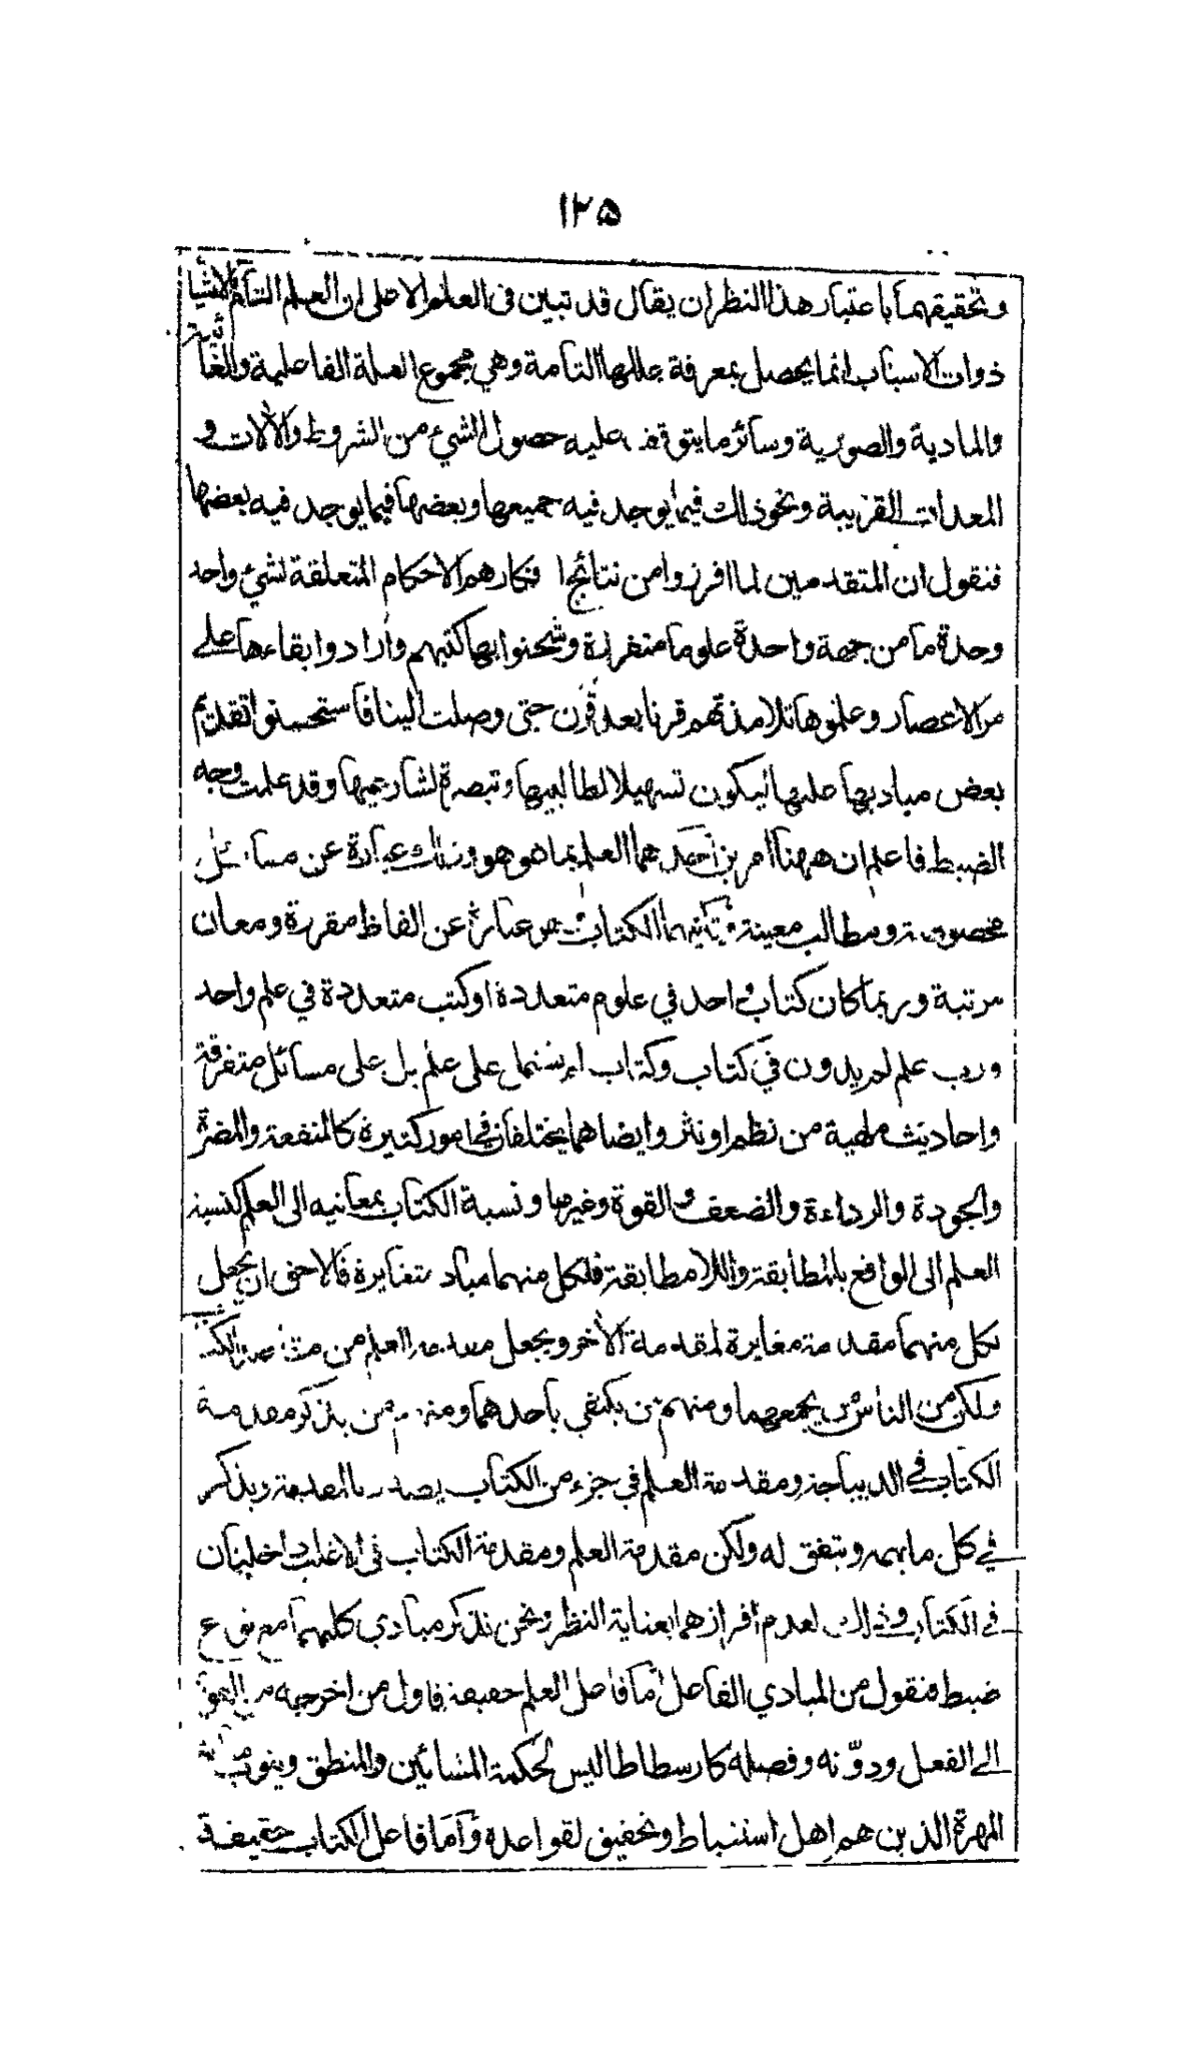 ١٢٥
وتحقيقهما باعتبار هذا النظر ان يقال قد تبين فى العلم الاعلى ان العلم التام بالاشيا
ذوات الاسباب انما يحصل بمعرفة عللها التامة وهي مجموع العلة الفاعلية والغائية
والمادية والصورية وسائر ما يتوقف عليه حصول الشيء من الشروط والآلات و
المعدات القريبة ونحو ذلك فيما يوجد فيه جميعها وبعضها فيما يوجد فيه بعضها
فنقول ان المتقدمين لما افرزوا من نتائج افكارهم الاحكام المتعلقة لشيء واحد
وحدة ما من جهة واحدة علوما منفردة وشحنوا بها كتبهم وارادوا ابقاءها على
مر الاعصار وعلموها تلامذتهم قرنا بعد قرن حتى وصلت الينا فاستحسنوا تقديم
بعض مباديها عليها ليكون تسهيلا لطالبيها وتبصرة لشارعيها وقد علمت وجه
الضبط فاعلم ان ههنا امرين احدهما العلم بما هو هو وذلك عبارة عن مسائل
مخصوصة ومطالب معينة وثانيهما الكتاب وهو عبارة عن الفاظ مقررة ومعان
مرتبة وربما كان كتاب واحد في علوم متعددة او كتب متعددة في علم واحد
ورب علم لم يدون في كتاب وكتاب لم يشتمل على علم بل على مسائل متفرقة
واحاديث ملهية من نظم او نثر وايضا هما يختلفان في امور كثيرة كالمنفعة والمضرة
والجودة والرداءة والضعف والقوة وغيرها ونسبة الكتاب بمعانيه الى العلم كنسبة
العلم الى الواقع بالمطابقة واللامطابقة فلكل منهما مباد متغايرة فالاحق ان يجعل
لكل منهما مقدمة مغايرة لمقدمة الآخر ويجعل مقدمة العلم من مقاصد الكتب
ولكن من الناس من يجمعهما ومنهم من يكتفي باحدهما ومنهم من يذكر مقدمة
الكتاب في الديباجة ومقدمة العلم في جزء من الكتاب يصدر بالمقدمة ويذكر
في كل ما يهمه ويتفق له ولكن مقدمة العلم ومقدمة الكتاب فى الاغلب داخلتان
فى الكتاب وذلك لعدم افرازهما بعناية النظر ونحن نذكر مبادي كليهما مع نوع
ضبط فنقول من المبادي الفاعل اما فاعل العلم حقيقة فاول من اخرجه من القوة
الى الفعل ودوّنه وفصله كارسطاطاليس لحكمة المشائين والمنطق وينوب
المهرة الذين هم اهل استنباط وتحقيق لقواعده واما فاعل الكتاب حقيقة